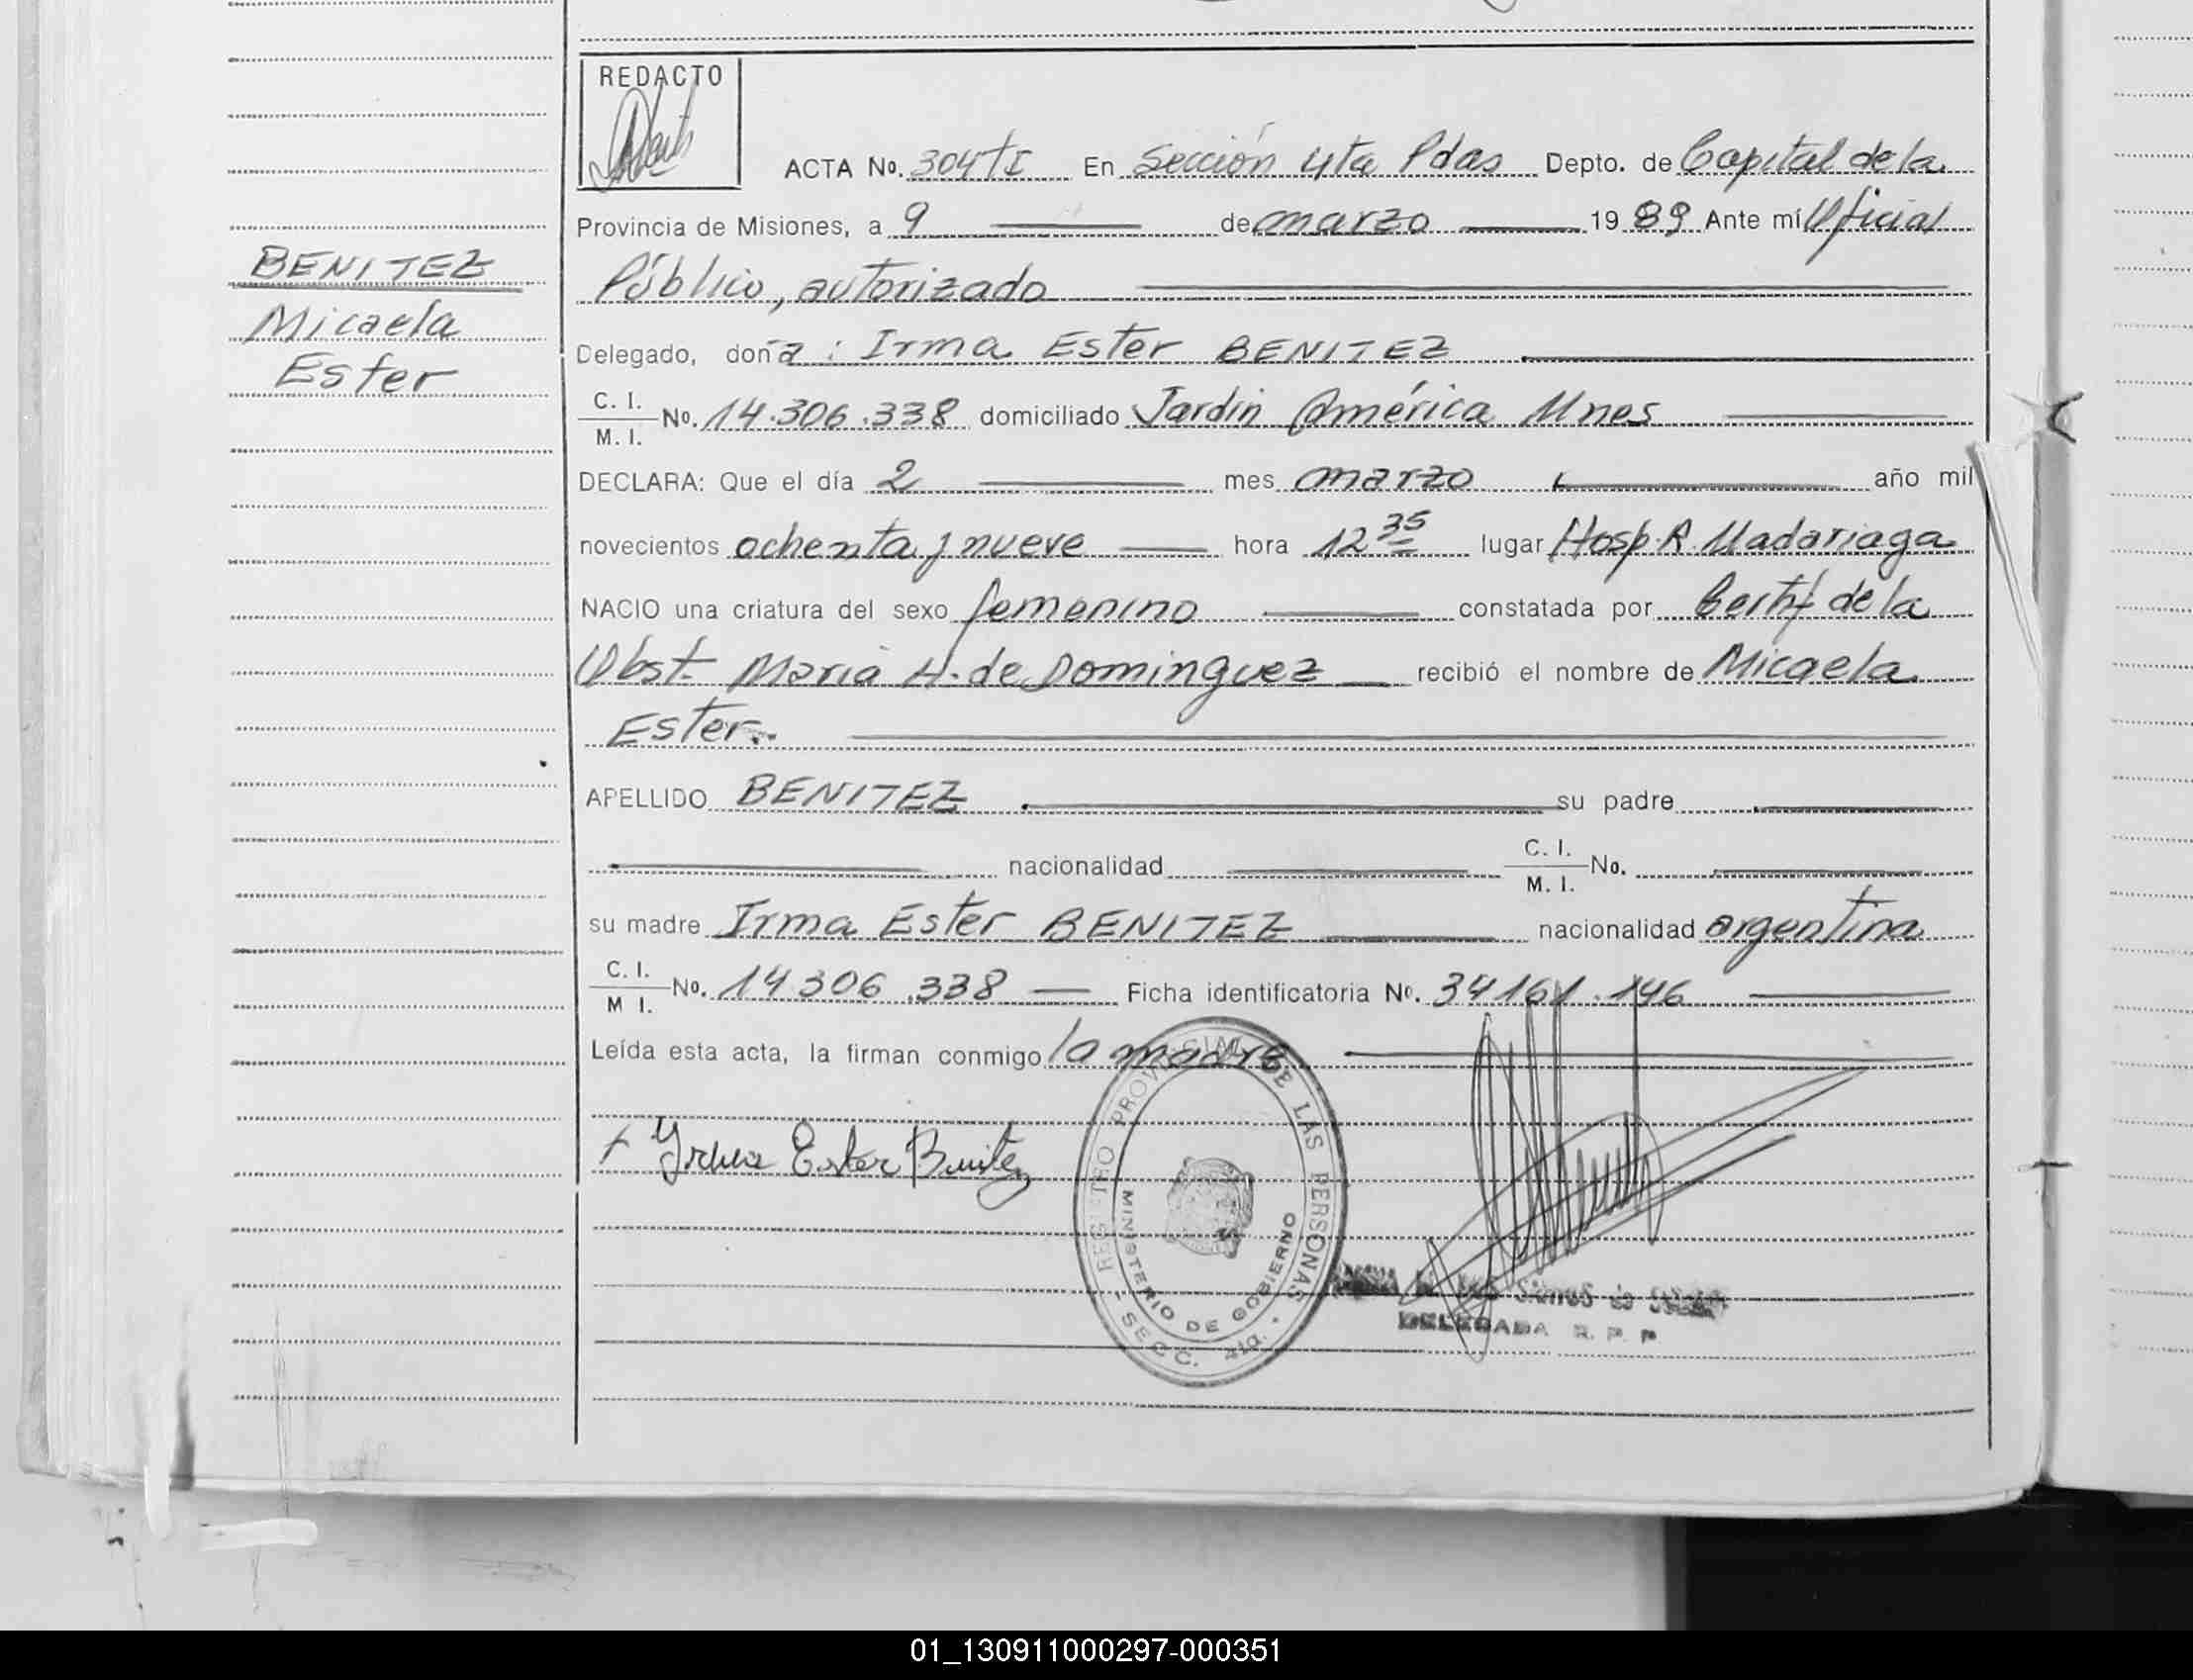 REDACTO
ACTA No. 304 TI En Sección 4ta Pdas Depto. de Capital de la
Provincia de Misiones, a 9 de marzo 1989 Ante mí Oficial
Público, autorizado
BENITEZ
Micaela
Ester
Delegado, doña: Irma Ester BENITEZ
C. I.
M. I. No. 14.306.338 domiciliado Jardin América Mnes
DECLARA: Que el día 2 mes marzo año mil
novecientos ochenta y nueve hora 12 35 lugar Hosp. R. Madariaga
NACIO una criatura del sexo femenino constatada por Certif de la
Obst. Maria H. de Dominguez recibió el nombre de Micaela
Ester.
APELLIDO BENITEZ su padre
nacionalidad C. I.
M. I. No.
su madre Irma Ester BENITEZ nacionalidad argentina
C. I.
M I. No. 14 306 .338 Ficha identificatoria No. 34 161.146
Leída esta acta, la firman conmigo la madre
+ Irma Ester Benitez
REGISTRO PROVINCIAL DE LAS PERSONAS
MINISTERIO DE GOBIERNO
SECC. 4ta.
DELEGADA R. P. P
01_130911000297-000351